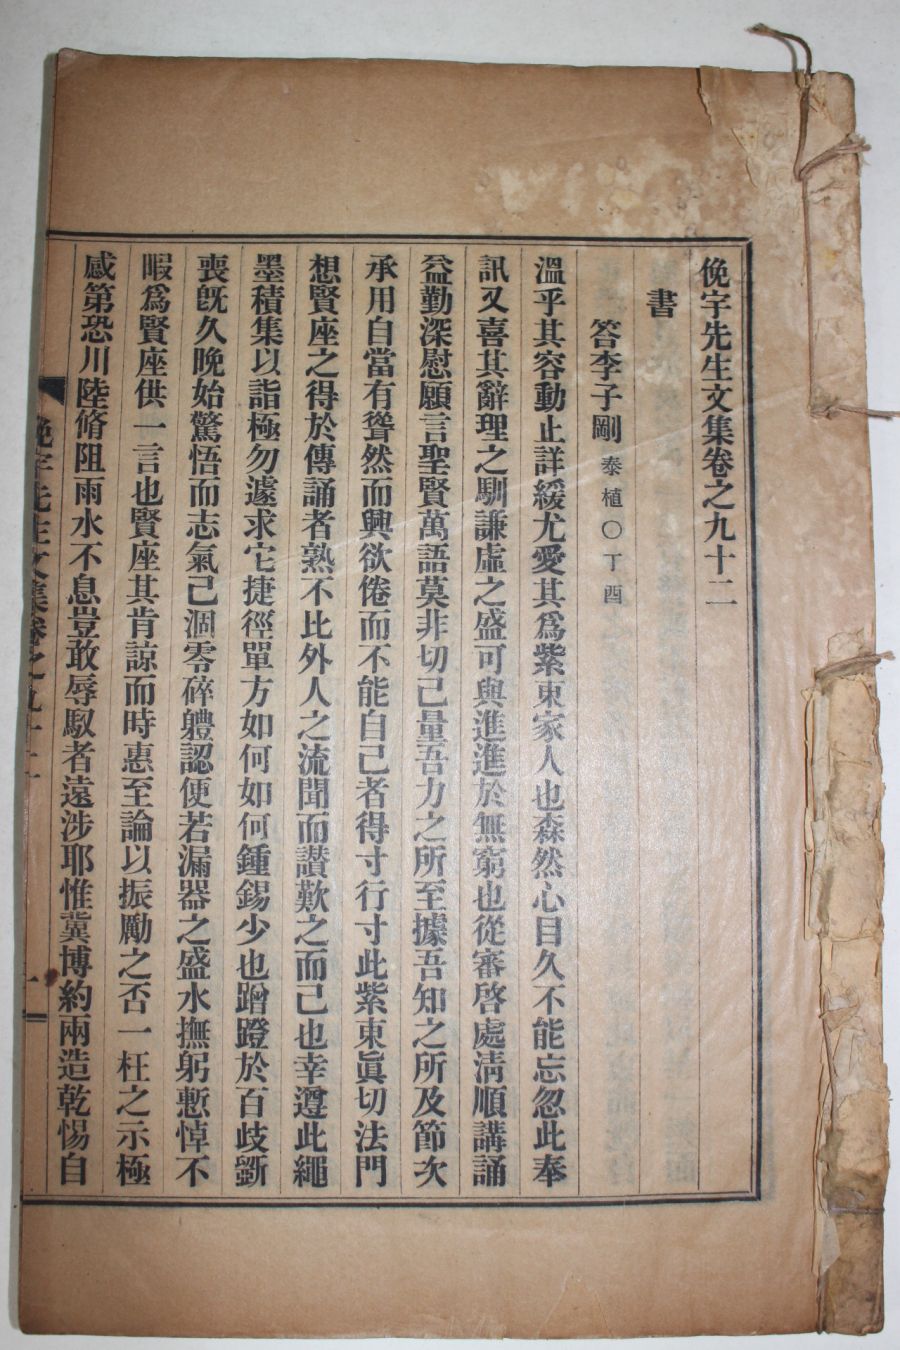 俛宇先生文集卷之九十二
書
答李子剛 泰植○丁酉
溫乎其容動止詳緩尤愛其爲紫東家人也森然心目久不能忘忽此奉
訊又喜其辭理之馴謙虛之盛可與進進於無窮也從審啓處淸順講誦
益勤深慰願言聖賢萬語莫非切己量吾力之所至據吾知之所及節次
承用自當有聳然而興欲倦而不能自己者得寸行寸此紫東眞切法門
想賢座之得於傳誦者熟不比外人之流聞而讚歎之而已也幸遵此繩
墨積集以詣極勿遽求它捷徑單方如何如何鍾錫少也蹭蹬於百歧斲
喪旣久晩始驚悟而志氣已涸零碎軆認便若漏器之盛水撫躬慙悼不
暇爲賢座供一言也賢座其肯諒而時惠至論以振勵之否一枉之示極
感第恐川陸脩阻雨水不息豈敢辱馭者遠涉耶惟冀博約兩造乾惕自
俛宇先生文集卷之九十二
一